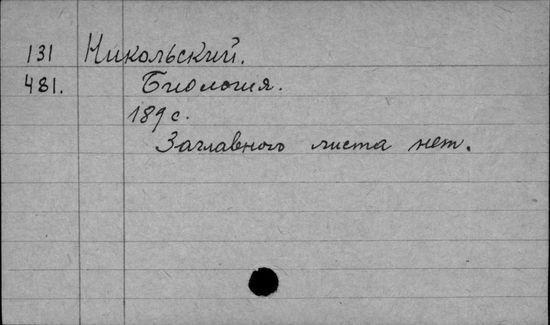 131 Никольский.
481. Биология.
189 с.
Заглавного листа нет.